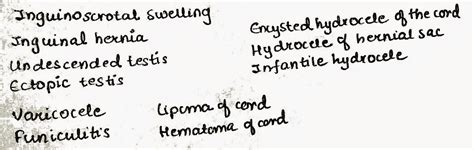 Inguinoscrotal swelling
Inguinal hernia
Undescended testis
Ectopic testis
Encysted hydrocele of the cord
Hydrocele of hernial sac
Infantile hydrocele
Varicocele
Funiculitis
Lipoma of cord
Hematoma of cord